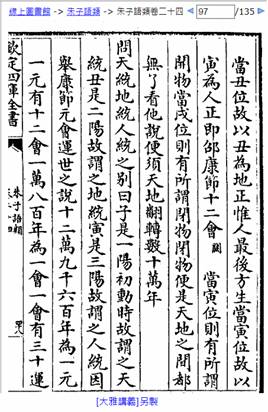 線上圖書館 -> 朱子語類 -> 朱子語類卷二十四 97 /135
當丑位故以丑為地正惟人最後方生當寅位故以
寅為人正即邵康節十二會 闕 當寅位則有所謂
開物當戌位則有所謂閉物閉物便是天地之間都
無了看他說便須天地翻轉數十萬年
問天統地統人統之別曰子是一陽初動時故謂之天
統丑是二陽故謂之地統寅是三陽故謂之人統因
舉康節元會運世之說十二萬九千六百年為一元
一元有十二會一萬八百年為一會一會有三十運
欽定四庫全書
朱子語類
[大雅講義]另製